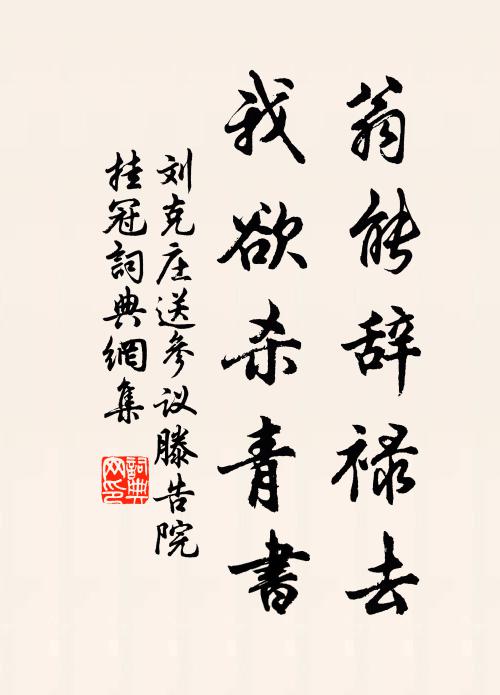 翁能辞禄去
我欲杀青書
刘克庄送参议滕告院
桂冠詞典網集
詞典网印